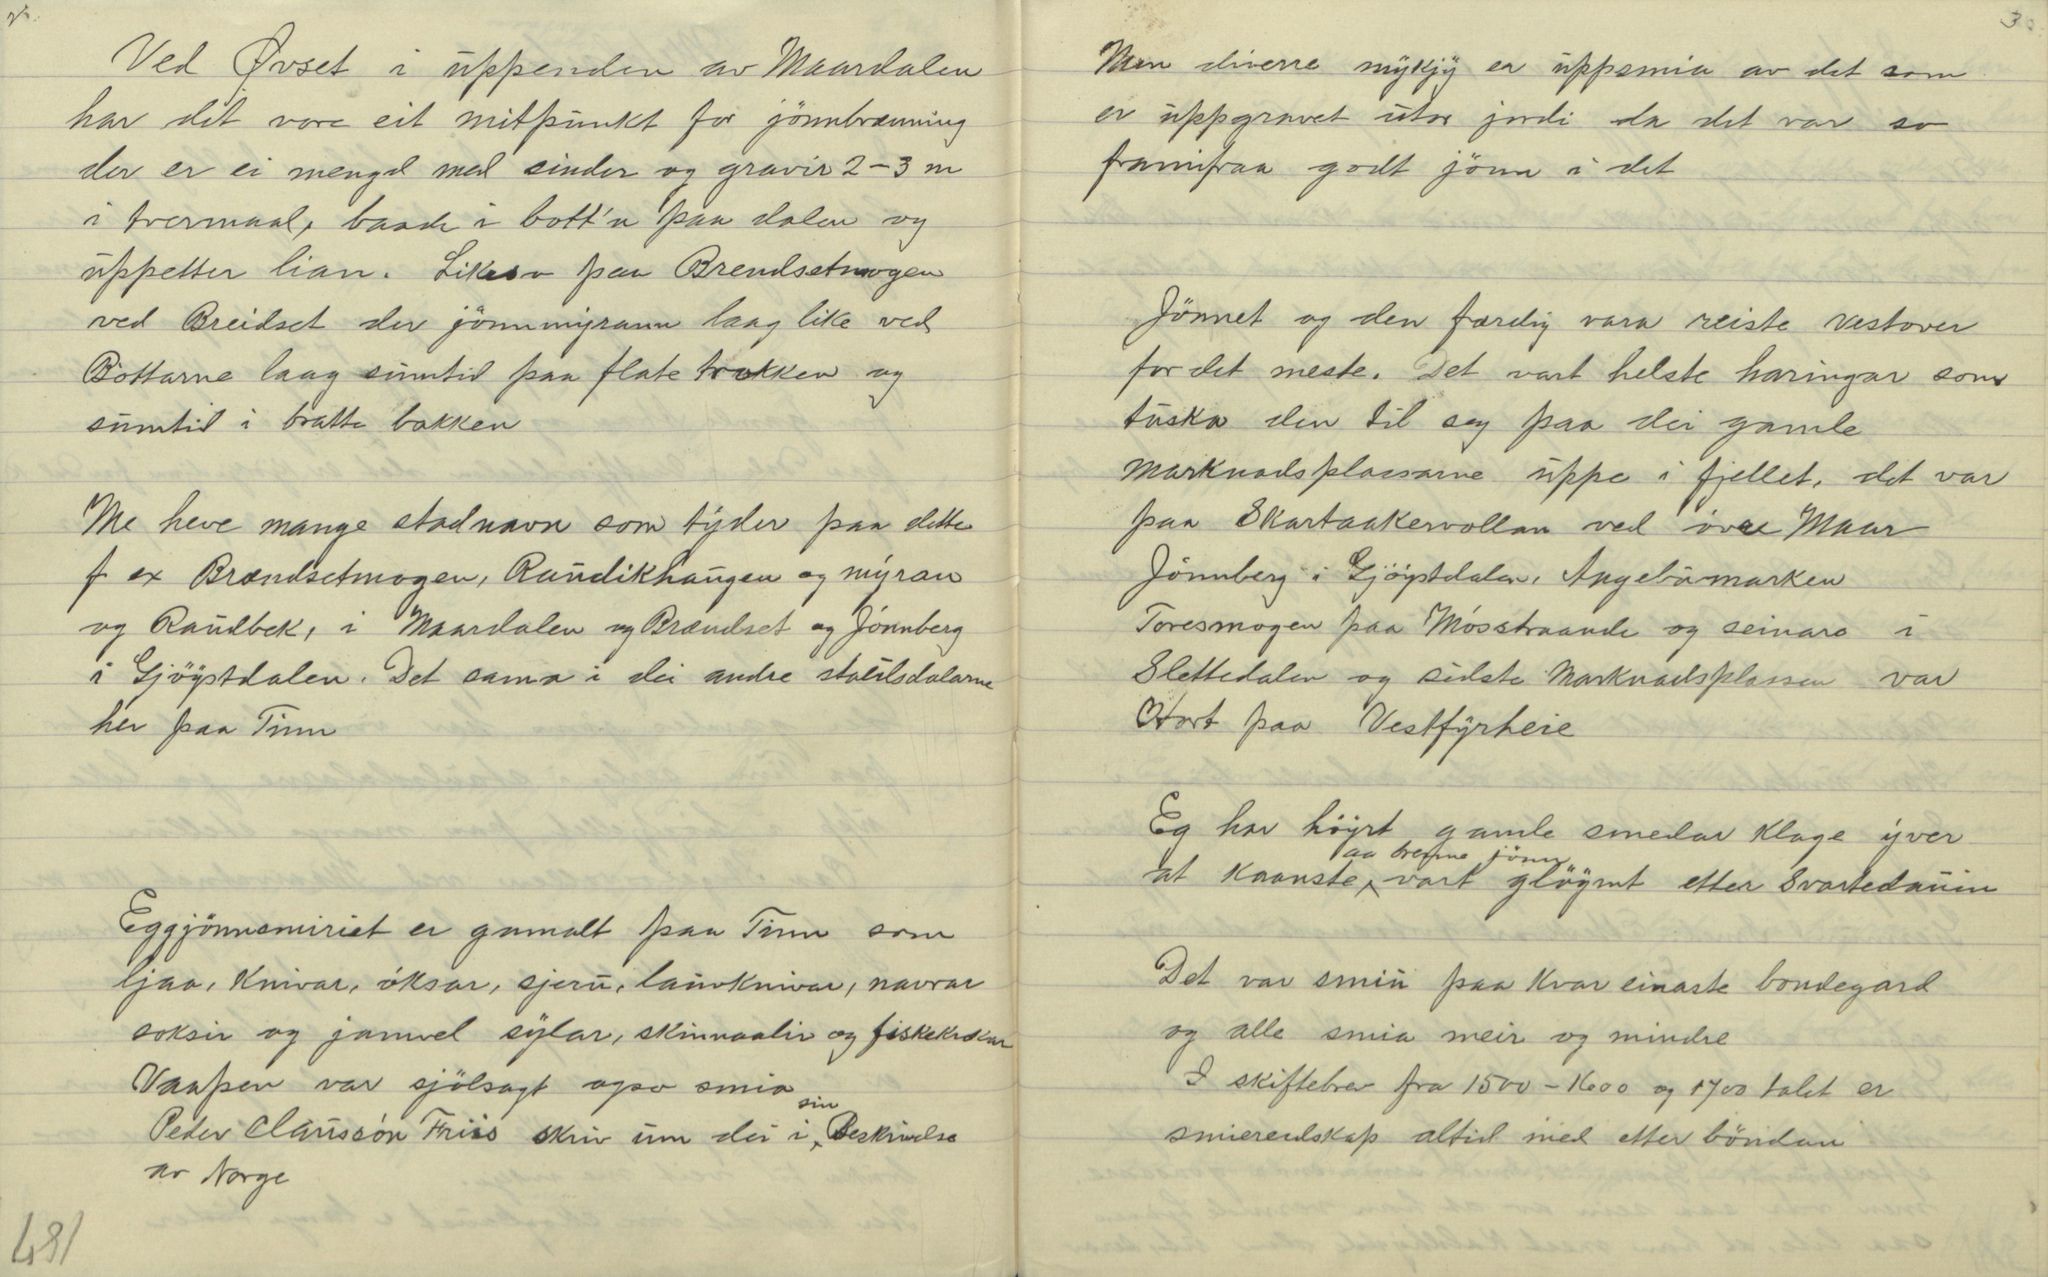 2.
Ved Øvset i uppenden av Maardalen
har det vore eit mitpunkt for jönnbrænning
der er ei mengd med sinder og gravir 2-3 m
i tvermaal, baade i bott'n paa dalen og
uppetter lian. Likeso paa Brendsetmogen
ved Breidset der jönnmyrann laag like ved
Bottarne laag sumtid paa flate trokken og
sumtid i bratte bakken
Me heve mange stadnavn som tyder paa dette
f ex Brændsetmogen, Raudikhaugen og myran
og Raudbek, i Maardalen og Brændset og Jönnberg
i Gjöystdalen. Det sama i dei andre staulsdalarne
her paa Tinn
Eggjönnsmiriet er gamalt paa Tinn som
ljaa, knivar, öksar, sjeru, lauvknivar, navrar
soksir og jamvel sylar, skinnaalir og fiskekrokar
Vaapen var sjölsagt ogso smia
Peder Claussön Friis skriv um dei i sin Beskrivelse
av Norge
431
3
Men diverre mykjy er uppsmia av det som
er uppgravet utor jordi da det var so
framifraa godt jönn i det
Jönnet og den færdig vara reiste vestover
for det meste. Det vart helste haringar som
tuska den til seg paa dei gamle
marknadsplassarne uppe i fjellet, det var
paa Skartaakervollan ved övre Maar
Jönnberg i Gjöystdalen, Angebumarken
Toresmogen paa Mösstraande og seinare i
Slettedalen og sidste marknadsplassen var
Hart paa Vestfyrheie
Eg har höyrt gamle smedar klage yver
at kaanste aa brenne jönn vart glöymt etter Svartedauin
Det var smiu paa kvar einaste bondegard
og alle smia meir og mindre
I skiftebrev fra 1500-1600 og 1700 talet er
smiereidskap altid med etter böndan